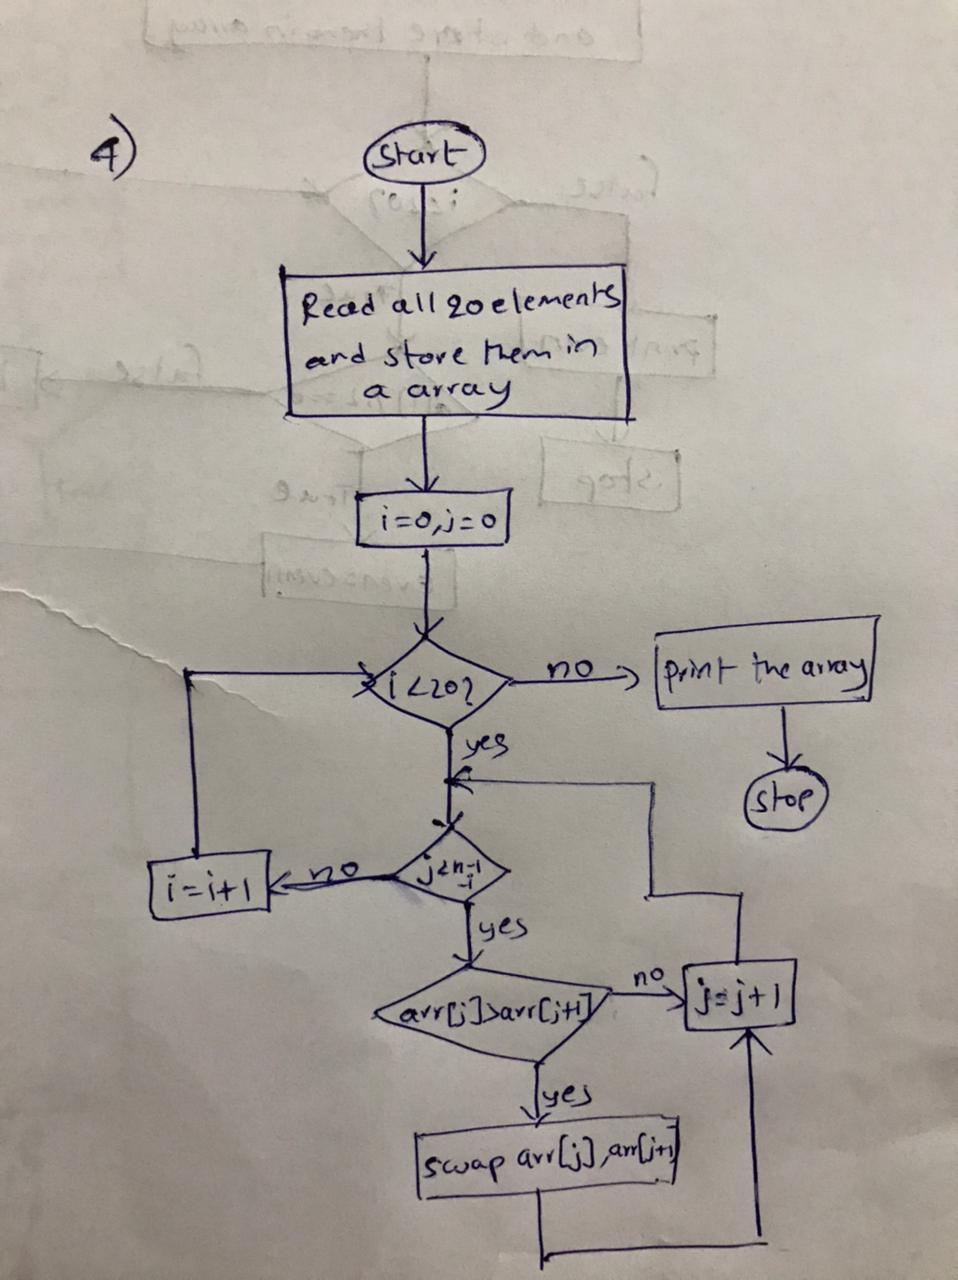 4)
Start
Read all 20 elements
and store them in
a array
i=0,j=0
i<20?
no
print the array
yes
stop
j<n-1
-i
no
i=i+1
yes
arr[j]>arr[j+1]
no
j=j+1
yes
swap arr[j],arr[j+1]